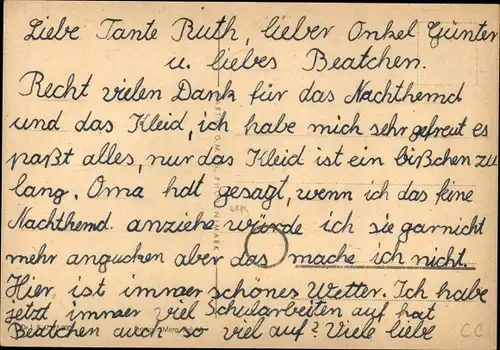 Liebe Tante Ruth, lieber Onkel Günter
u. liebes Beatchen.
Recht vielen Dank für das Nachthemd
und das Kleid, ich habe mich sehr gefreut es
paßt alles, nur das Kleid ist ein bißchen zu
lang. Oma hat gesagt, wenn ich das feine
Nachthemd anziehe würde ich sie garnicht
mehr angucken aber das mache ich nicht.
Hier ist immer schönes Wetter. Ich habe
jetzt immer viel Schularbeiten auf hat
Beatchen auch so viel auf? Viele liebe
CC